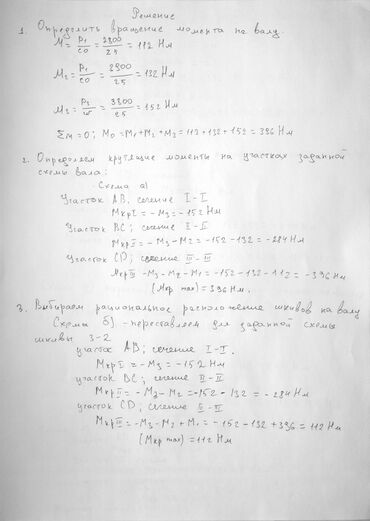 Решение
1. Определить вращение момента на валу.
M = P₁/ω = 2800/25 = 112 Нм
M₂ = P₁/ω = 2900/25 = 132 Нм
M₂ = P₃/ω = 3800/25 = 152 Нм
Σm = 0; M₀ = M₁ + M₂ + M₃ = 112 + 132 + 152 = 396 Нм
2. Определяем крутящие моменты на участках заданной
схемы вала:
Схема а)
Участок AB, сечение I - I
Mкр I = - M₃ = -152 Нм
Участок BC; сечение I - I
Mкр II = - M₃ - M₂ = -152 - 132 = -284 Нм
Участок CD; сечение III - III
Mкр III - M₃ - M₂ - M₁ = -152 - 132 - 112 = -396 Нм
(Mкр max) = 396 Нм.
3. Выбираем рациональное расположение шкивов на валу
Схема б) - переставляем для заданной схемы
шкивы 3-2
участок AB; сечение I - I.
Mкр I = - M₃ = -152 Нм
участок BC; сечение II - II
Mкр II = - M₃ - M₂ = -152 - 132 = -284 Нм
участок CD; сечение II - II
Mкр III = - M₃ - M₂ + M₀ = -152 - 132 + 396 = 112 Нм
(Mкр max) = 112 Нм